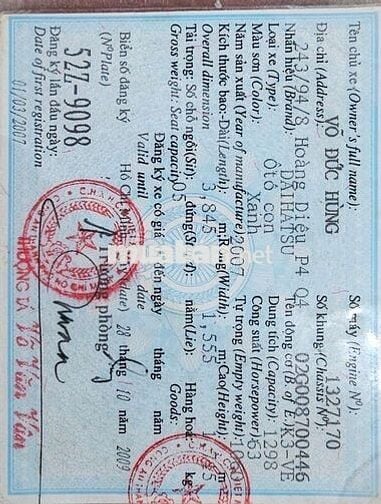 Tên chủ xe (Owner's full name):
VÕ ĐỨC HÙNG
Số máy (Engine Nº): 1327170
Địa chỉ (Address):
Số khung (Chassis Nº): 02G008700446
243/94/8 Hoàng Diệu P4 Q4
Nhãn hiệu (Brand): DAIHATSU
Loại xe (Type): Ôtô con
Dung tích (Capacity): 1298
Màu sơn (Color): Xanh
Công suất (Horsepower): 63
Năm sản xuất (Year of manufacture): 2007
Tự trọng (Empty weight):
Kích thước bao:-Dài(Length): 3,845 m;Rộng(Width): 1,555 m;Cao(Height)
Overall dimension
Tải trọng: Số chỗ ngồi(Sit): 05 đứng(Stand): nằm(Lie): Hàng hoá: kg
Gross weight: Seat capacity Goods:
Đăng ký xe có giá trị đến ngày tháng năm
Valid until date
Biển số đăng ký
(Nº Plate)
52Z-9098
(date) 28 tháng 10 năm 2009
Trưởng phòng
Đăng ký lần đầu ngày:
Date of first registration
01/03/2007
muaban.net